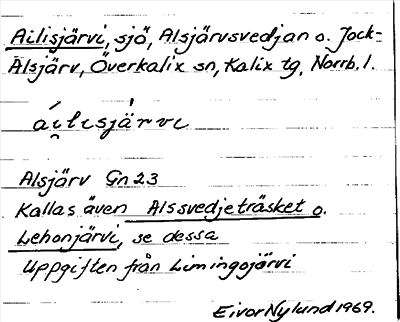 Ailisjärvi, sjö, Alsjärvsvedjan o. Jock-
Alsjärv, Överkalix sn, Kalix tg, Norrb. l.
ái̯lisjä́rvi
Alsjärv Gn23
Kallas även Alssvedjeträsket o.
Lehonjärvi, se dessa
Uppgiften från Limingojärvi
Eivor Nylund 1969.